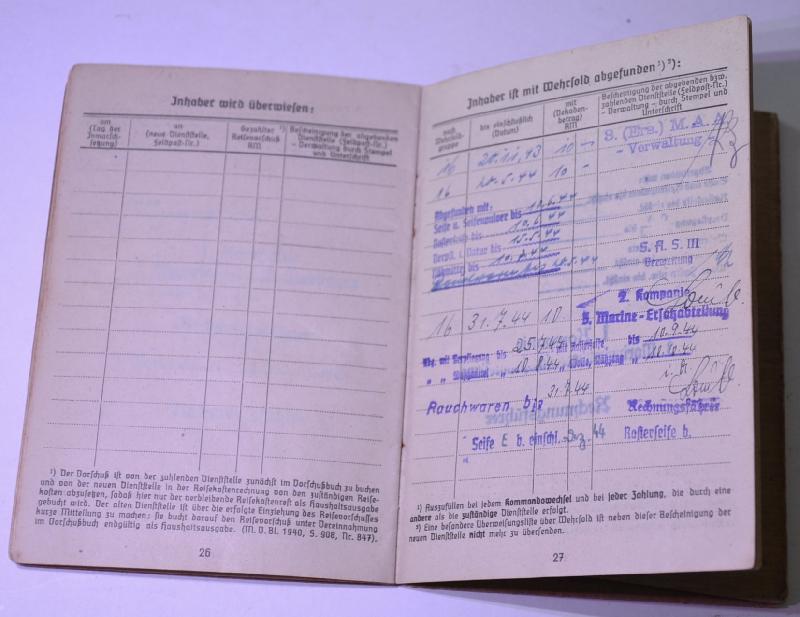 Inhaber wird überwiesen:
am
(Tag der
Inmarsch-
setzung)
an
(neue Dienststelle,
Feldpost-Nr.)
Gezahlter ¹)
Reisevorschuß
RM
Bescheinigung der abgebenden
Dienststelle (Feldpost-Nr.)
– Verwaltung durch Stempel
und Unterschrift
¹) Der Vorschuß ist von der zahlenden Dienststelle zunächst im Vorschußbuch zu buchen
und von der neuen Dienststelle in der Reisekostenrechnung von den zuständigen Reise-
kosten abzusetzen, sodaß hier nur der verbleibende Reisekostenrest als Haushaltsausgabe
gebucht wird. Der alten Dienststelle ist über die erfolgte Einziehung des Reisevorschusses
kurze Mitteilung zu machen; sie bucht darauf den Reisevorschuß unter Vereinnahmung
im Vorschußbuch endgültig als Haushaltsausgabe. (M. D. Bl. 1940, S. 908, Nr. 847).
26
Inhaber ist mit Wehrsold abgefunden ¹) ²):
nach
Wehrsold-
gruppe
bis einschließlich
(Datum)
mit
(Dekaden-
betrag)
RM
Bescheinigung der abgebenden bzw.
zahlenden Dienststelle (Feldpost-Nr.)
– Verwaltung – durch Stempel und
Unterschrift
16 20.11.43 10 – 8. (Ers.) M. A. A.
– Verwaltung –
16 20.5.44 10 –
Abgefunden mit:
Seife u. Seifenpulver bis 10.6.44
Rasierseife bis 10.6.44
Verpfl. i. Natur bis 15.5.44
bis 10.6.44
20.5.44
S. A. S. III
Verwaltung
2. Kompanie
16 31.7.44 10 5. Marine-Ersatzabteilung
Abg. mit Verpflegung bis 25.7.44 mit bis 10.9.44
" " 10.8.44 " 10.10.44
31.7.44 i. A.
Rauchwaren bis Rechnungsführer
Seife E b. einschl. Dez. 44 Rasierseife b.
¹) Auszufüllen bei jedem Kommandowechsel und bei jeder Zahlung, die durch eine
andere als die zuständige Dienststelle erfolgt.
²) Eine besondere Überweisungsliste über Wehrsold ist neben dieser Bescheinigung der
neuen Dienststelle nicht mehr zu übersenden.
27